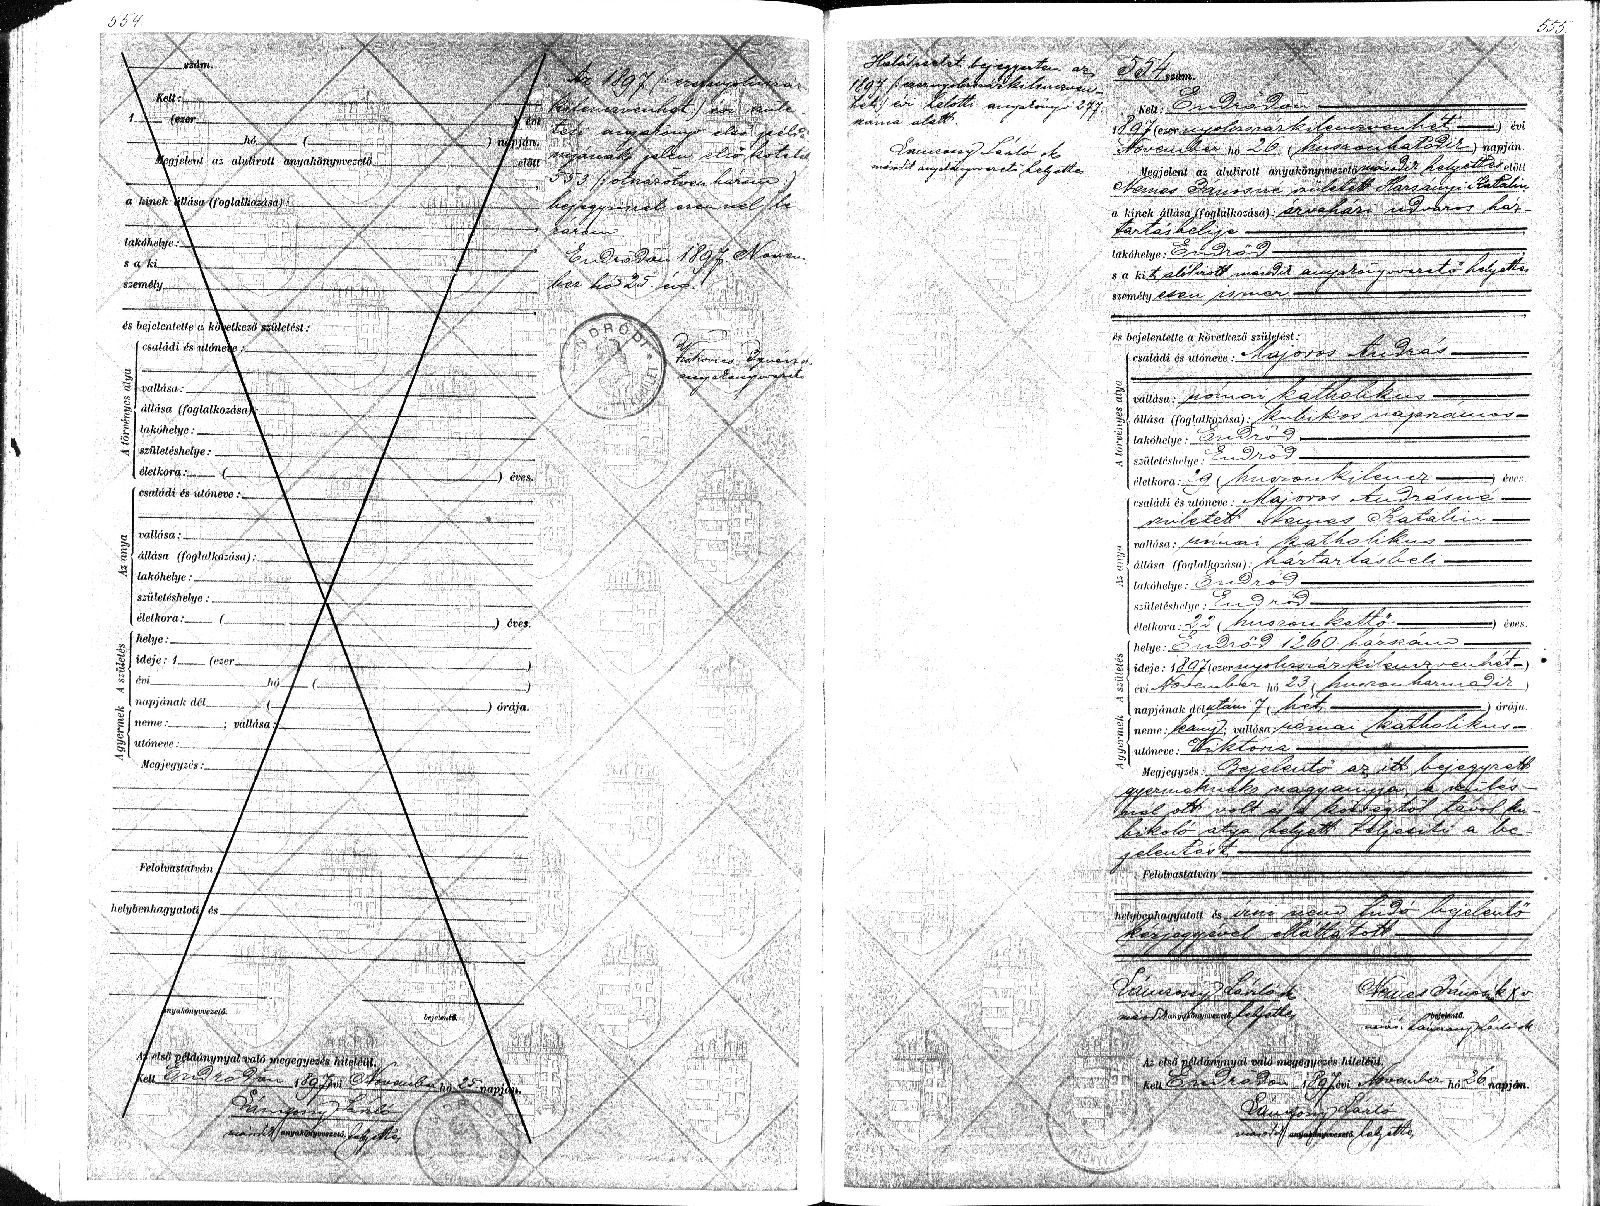 554
szám.
Kelt:
1 (ezer ) évi
hó ( ) napján.
Megjelent az alulirott anyakönyvvezető előtt
a kinek állása (foglalkozása):
lakóhelye:
s a ki
személy
és bejelentette a következő születést:
A törvényes atya
családi és utóneve:
vallása:
állása (foglalkozása):
lakóhelye:
születéshelye:
életkora: ( ) éves.
Az anya
családi és utóneve:
vallása:
állása (foglalkozása):
lakóhelye:
születéshelye:
életkora: ( ) éves.
A születés
helye:
ideje: 1 (ezer )
évi hó ( )
napjának dél ( ) órája.
A gyermek
neme: ; vallása:
utóneve:
Megjegyzés:
Felolvastatván
helybenhagyatott és
anyakönyvvezető. bejelentő.
Az első példánynyal való megegyezés hiteléül.
Kelt Endrődön 1897 évi November hó 25 napján.
Lánczony László
másodh anyakönyvvezető helyettes
Az 1897 (ezernyolczszáz
kilenczvenhét) évi szüle
tési anyakönyv első péld
nyának jelen első kötetét
553 (ötszázötvenhárom)
bejegyzéssel ezennel le
zárom
Endrődön 1897 Novem
ber hó 25 én.
anyakönyvvezető
555
Halálesetét bejegyeztem az
1897 (ezernyolczszázkilenczven-
hét) évi halotti anyakönyv 277
száma alatt.
Lánczony László k
másodh anyakönyvvezető helyettes
554 szám.
Kelt: Endrődön
1897 (ezer nyolczszázkilenczvenhét ) évi
November hó 26 (huszonhatodik) napján.
Megjelent az alulirott anyakönyvvezető másodh helyettes előtt
Nemes Jánosné született Harsányi Katalin
a kinek állása (foglalkozása): árvaházi udvaros ház-
tartásbelije
lakóhelye: Endrőd
s a kit alulirott másodh anyakönyvvezető helyettes
személyesen ismer
és bejelentette a következő születést:
A törvényes atya
családi és utóneve: Majoros András
vallása: római katholikus
állása (foglalkozása): kubikos napszámos
lakóhelye: Endrőd
születéshelye: Endrőd
életkora: 29 (huszonkilencz ) éves.
Az anya
családi és utóneve: Majoros Andrásné
született Nemes Katalin
vallása: római katholikus
állása (foglalkozása): háztartásbeli
lakóhelye: Endrőd
születéshelye: Endrőd
életkora: 22 (huszonkettő ) éves.
A születés
helye: Endrőd 1260 házszám
ideje: 1897 (ezer nyolczszázkilenczvenhét )
évi November hó 23 (huszonharmadik )
napjának délutáni 7 (hét ) órája.
A gyermek
neme: leány; vallása: római katholikus
utóneve: Viktoria
Megjegyzés: Bejelentő az itt bejegyzett
gyermeknek nagyanyja, a szülés-
nél ott volt és a községtől távol ku-
bikoló atya helyett teljesíti a be-
jelentést
Felolvastatván
helybenhagyatott és írni nem tudó bejelentő
kézjegyével elláttatott
Lánczony László k Nemes Jánosné k X v
másodh anyakönyvvezető helyettes bejelentő.
Lánczony László k
Az első példánynyal való megegyezés hiteléül.
Kelt Endrődön 1897 évi November hó 26 napján.
Lánczony László
másodh anyakönyvvezető helyettes